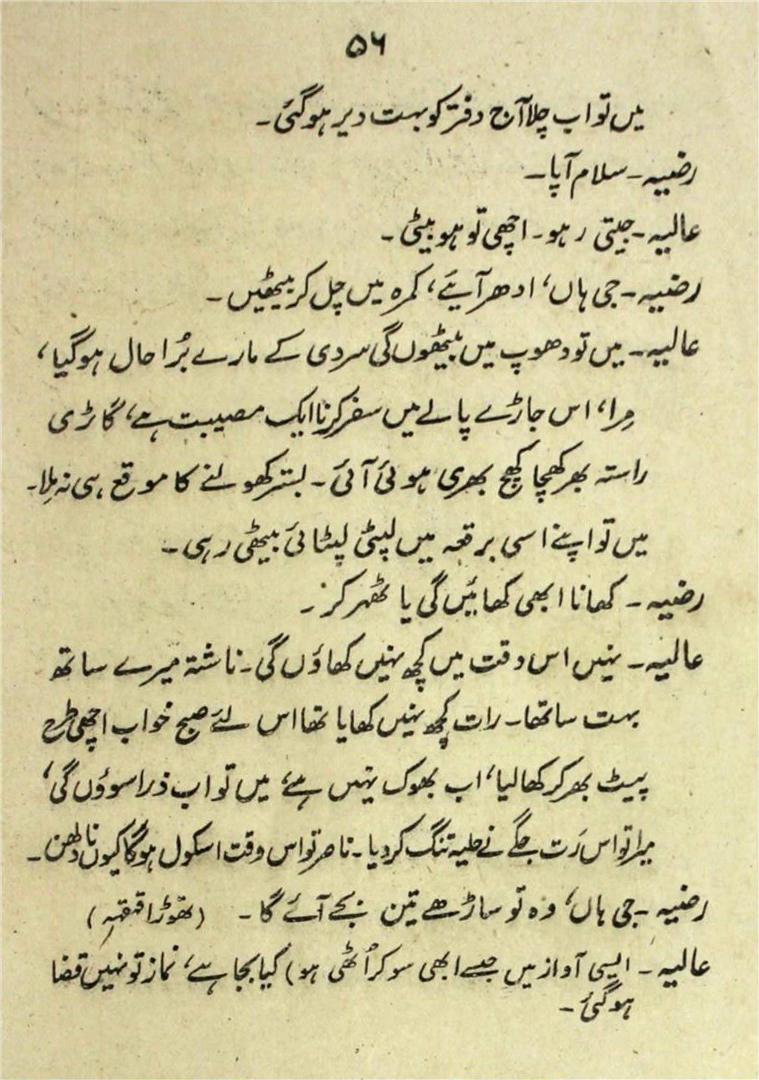 ۵۶
میں تو اب چلا آج دفتر کو بہت دیر ہو گئی۔
رضیہ۔ سلام آپا۔
عالیہ۔ جیتی رہو۔ اچھی تو ہو بیٹی۔
رضیہ۔ جی ہاں، ادھر آیئے، کمرہ میں چل کر بیٹھیں۔
عالیہ۔ میں تو دھوپ میں بیٹھوں گی سردی کے مارے بُرا حال ہو گیا،
مِرا، اس جاڑے پالے میں سفر کرنا ایک مصیبت ہے، گاڑی
راستہ بھر کھچا کھچ بھری ہوئی آئی۔ بستر کھولنے کا موقع ہی نہ مِلا۔
میں تو اپنے اسی برقعہ میں لپٹی لپٹائی بیٹھی رہی۔
رضیہ۔ کھانا ابھی کھائیں گی یا ٹھہر کر۔
عالیہ۔ نہیں اس وقت میں کچھ نہیں کھاؤں گی۔ ناشتہ میرے ساتھ
بہت سا تھا۔ رات کچھ نہیں کھایا تھا اس لئے صبح خواب اچھی طرح
پیٹ بھر کر کھا لیا، اب بھوک نہیں ہے، میں تو اب ذرا سوؤں گی،
میرا تو اس رَت جگے نے حلیہ تنگ کر دیا۔ ناصر تو اس وقت اسکول ہو گا کیوں نا دلھن۔
رضیہ۔ جی ہاں، وہ تو ساڑھے تین بجے آئے گا۔ (تھوڑا قہقہہ)
عالیہ۔ ایسی آواز میں جیسے ابھی سو کر اُٹھی ہو) کیا بجا ہے، نماز تو نہیں قضا
ہو گئی۔